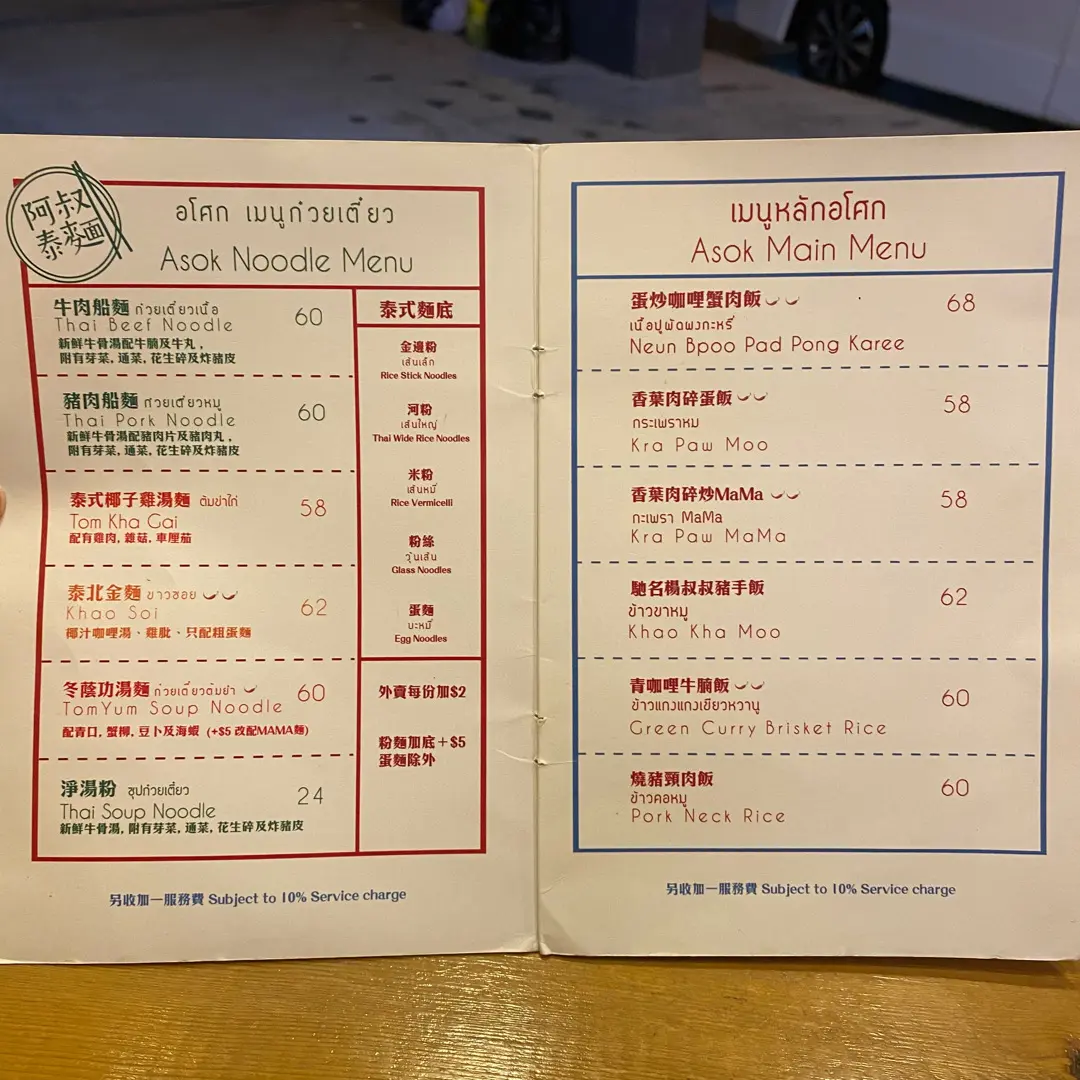 阿叔
泰麵
อโศก เมนูก๋วยเตี๋ยว
Asok Noodle Menu
牛肉船麵 ก๋วยเตี๋ยวเนื้อ 60
Thai Beef Noodle
新鮮牛骨湯配牛腩及牛丸,
附有芽菜, 通菜, 花生碎及炸豬皮
豬肉船麵 ก๋วยเตี๋ยวหมู 60
Thai Pork Noodle
新鮮牛骨湯配豬肉片及豬肉丸,
附有芽菜, 通菜, 花生碎及炸豬皮
泰式椰子雞湯麵 ต้มข่าไก่ 58
Tom Kha Gai
配有雞肉, 雜菇, 車厘茄
泰北金麵 ข้าวซอย 62
Khao Soi
椰汁咖喱湯、雞肶、只配粗蛋麵
冬蔭功湯麵 ก๋วยเตี๋ยวต้มยำ 60
TomYum Soup Noodle
配青口, 蟹柳, 豆卜及海蝦 (+$5 改配MAMA麵)
淨湯粉 ซุปก๋วยเตี๋ยว 24
Thai Soup Noodle
新鮮牛骨湯, 附有芽菜, 通菜, 花生碎及炸豬皮
泰式麵底
金邊粉
เส้นเล็ก
Rice Stick Noodles
河粉
เส้นใหญ่
Thai Wide Rice Noodles
米粉
เส้นหมี่
Rice Vermicelli
粉絲
วุ้นเส้น
Glass Noodles
蛋麵
บะหมี่
Egg Noodles
外賣每份加$2
粉麵加底+$5
蛋麵除外
另收加一服務費 Subject to 10% Service charge
เมนูหลักอโศก
Asok Main Menu
蛋炒咖哩蟹肉飯 68
เนื้อปูผัดผงกะหรี่
Neun Bpoo Pad Pong Karee
香葉肉碎蛋飯 58
กระเพราหม
Kra Paw Moo
香葉肉碎炒MaMa 58
กะเพรา MaMa
Kra Paw MaMa
馳名楊叔叔豬手飯 62
ข้าวขาหมู
Khao Kha Moo
青咖哩牛腩飯 60
ข้าวแกงแกงเขียวหวานู
Green Curry Brisket Rice
燒豬頸肉飯 60
ข้าวคอหมู
Pork Neck Rice
另收加一服務費 Subject to 10% Service charge